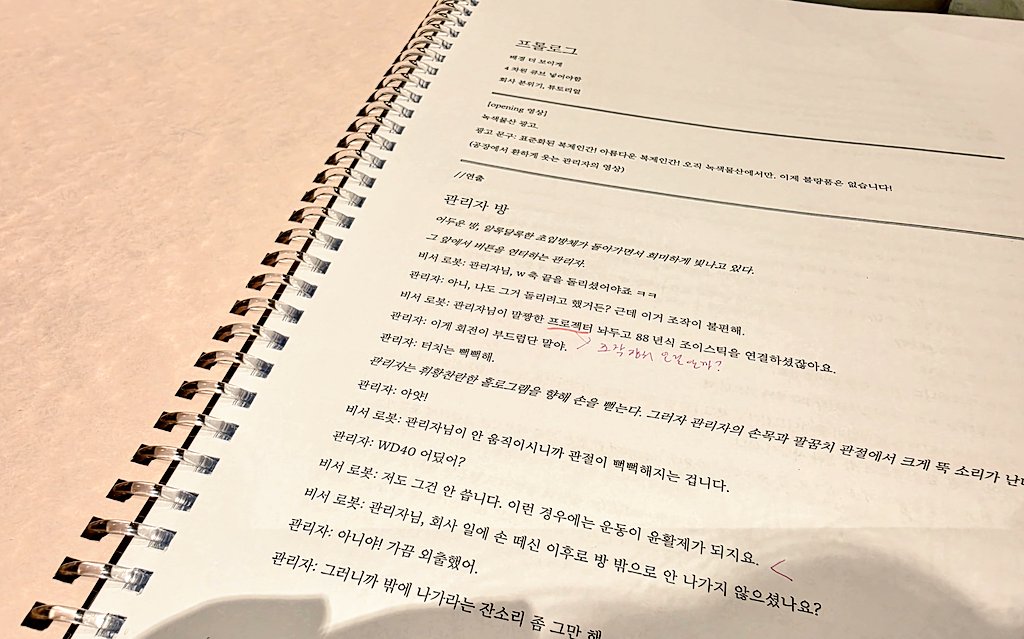 프롤로그
배경 더 보이게
4 차원 큐브 넣어야함
회사 분위기, 튜토리얼
[opening 영상]
녹색물산 광고.
광고 문구: 표준화된 복제인간! 아름다운 복제인간! 오직 녹색물산에서만. 이제 불량품은 없습니다!
(공장에서 환하게 웃는 관리자의 영상)
//연출
관리자 방
어두운 방, 알록달록한 초입방체가 돌아가면서 희미하게 빛나고 있다.
그 앞에서 버튼을 연타하는 관리자.
비서 로봇: 관리자님, w 축 끝을 돌리셨어야죠 ㅋㅋ
관리자: 아니, 나도 그거 돌리려고 했거든? 근데 이거 조작이 불편해.
비서 로봇: 관리자님이 말짱한 프로젝터 놔두고 88 년식 조이스틱을 연결하셨잖아요.
관리자: 이게 회전이 부드럽단 말야.
조작
관리자: 터치는 뻑뻑해.
관리자는 휘황찬란한 홀로그램을 향해 손을 뻗는다. 그러자 관리자의 손목과 팔꿈치 관절에서 크게 뚝 소리가
관리자: 아얏!
비서 로봇: 관리자님이 안 움직이시니까 관절이 뻑뻑해지는 겁니다.
관리자: WD40 어딨어?
비서 로봇: 저도 그건 안 씁니다. 이런 경우에는 운동이 윤활제가 되지요.
비서 로봇: 관리자님, 회사 일에 손 떼신 이후로 방 밖으로 안 나가지 않으셨나요?
관리자: 아니야! 가끔 외출했어.
관리자: 그러니까 밖에 나가라는 잔소리 좀 그만 해